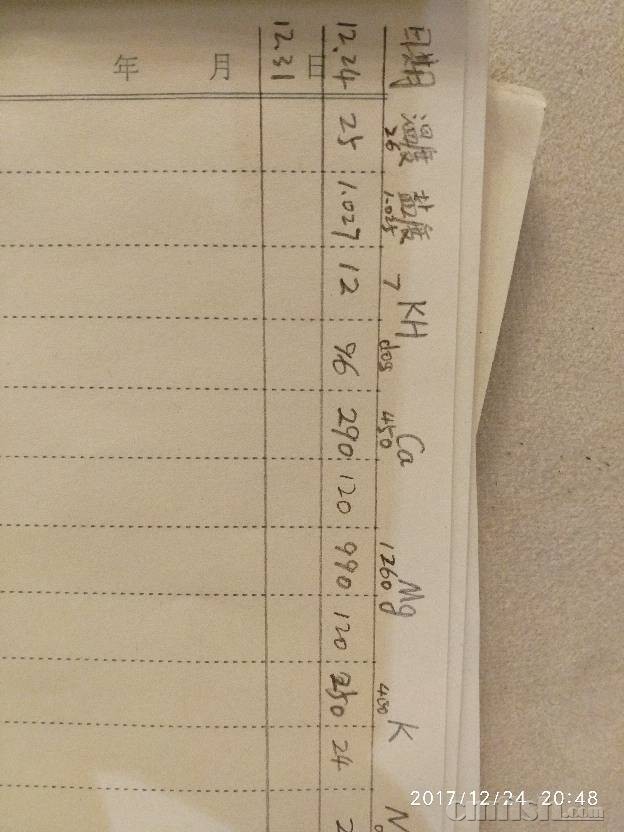 日期 温度 盐度 KH Ca Mg K
26 1.025 7 dos 450 1260 400
12.24 25 1.027 12 96 290 120 990 120 250 24
12.31
年 月 日
2017/12/24 20:48